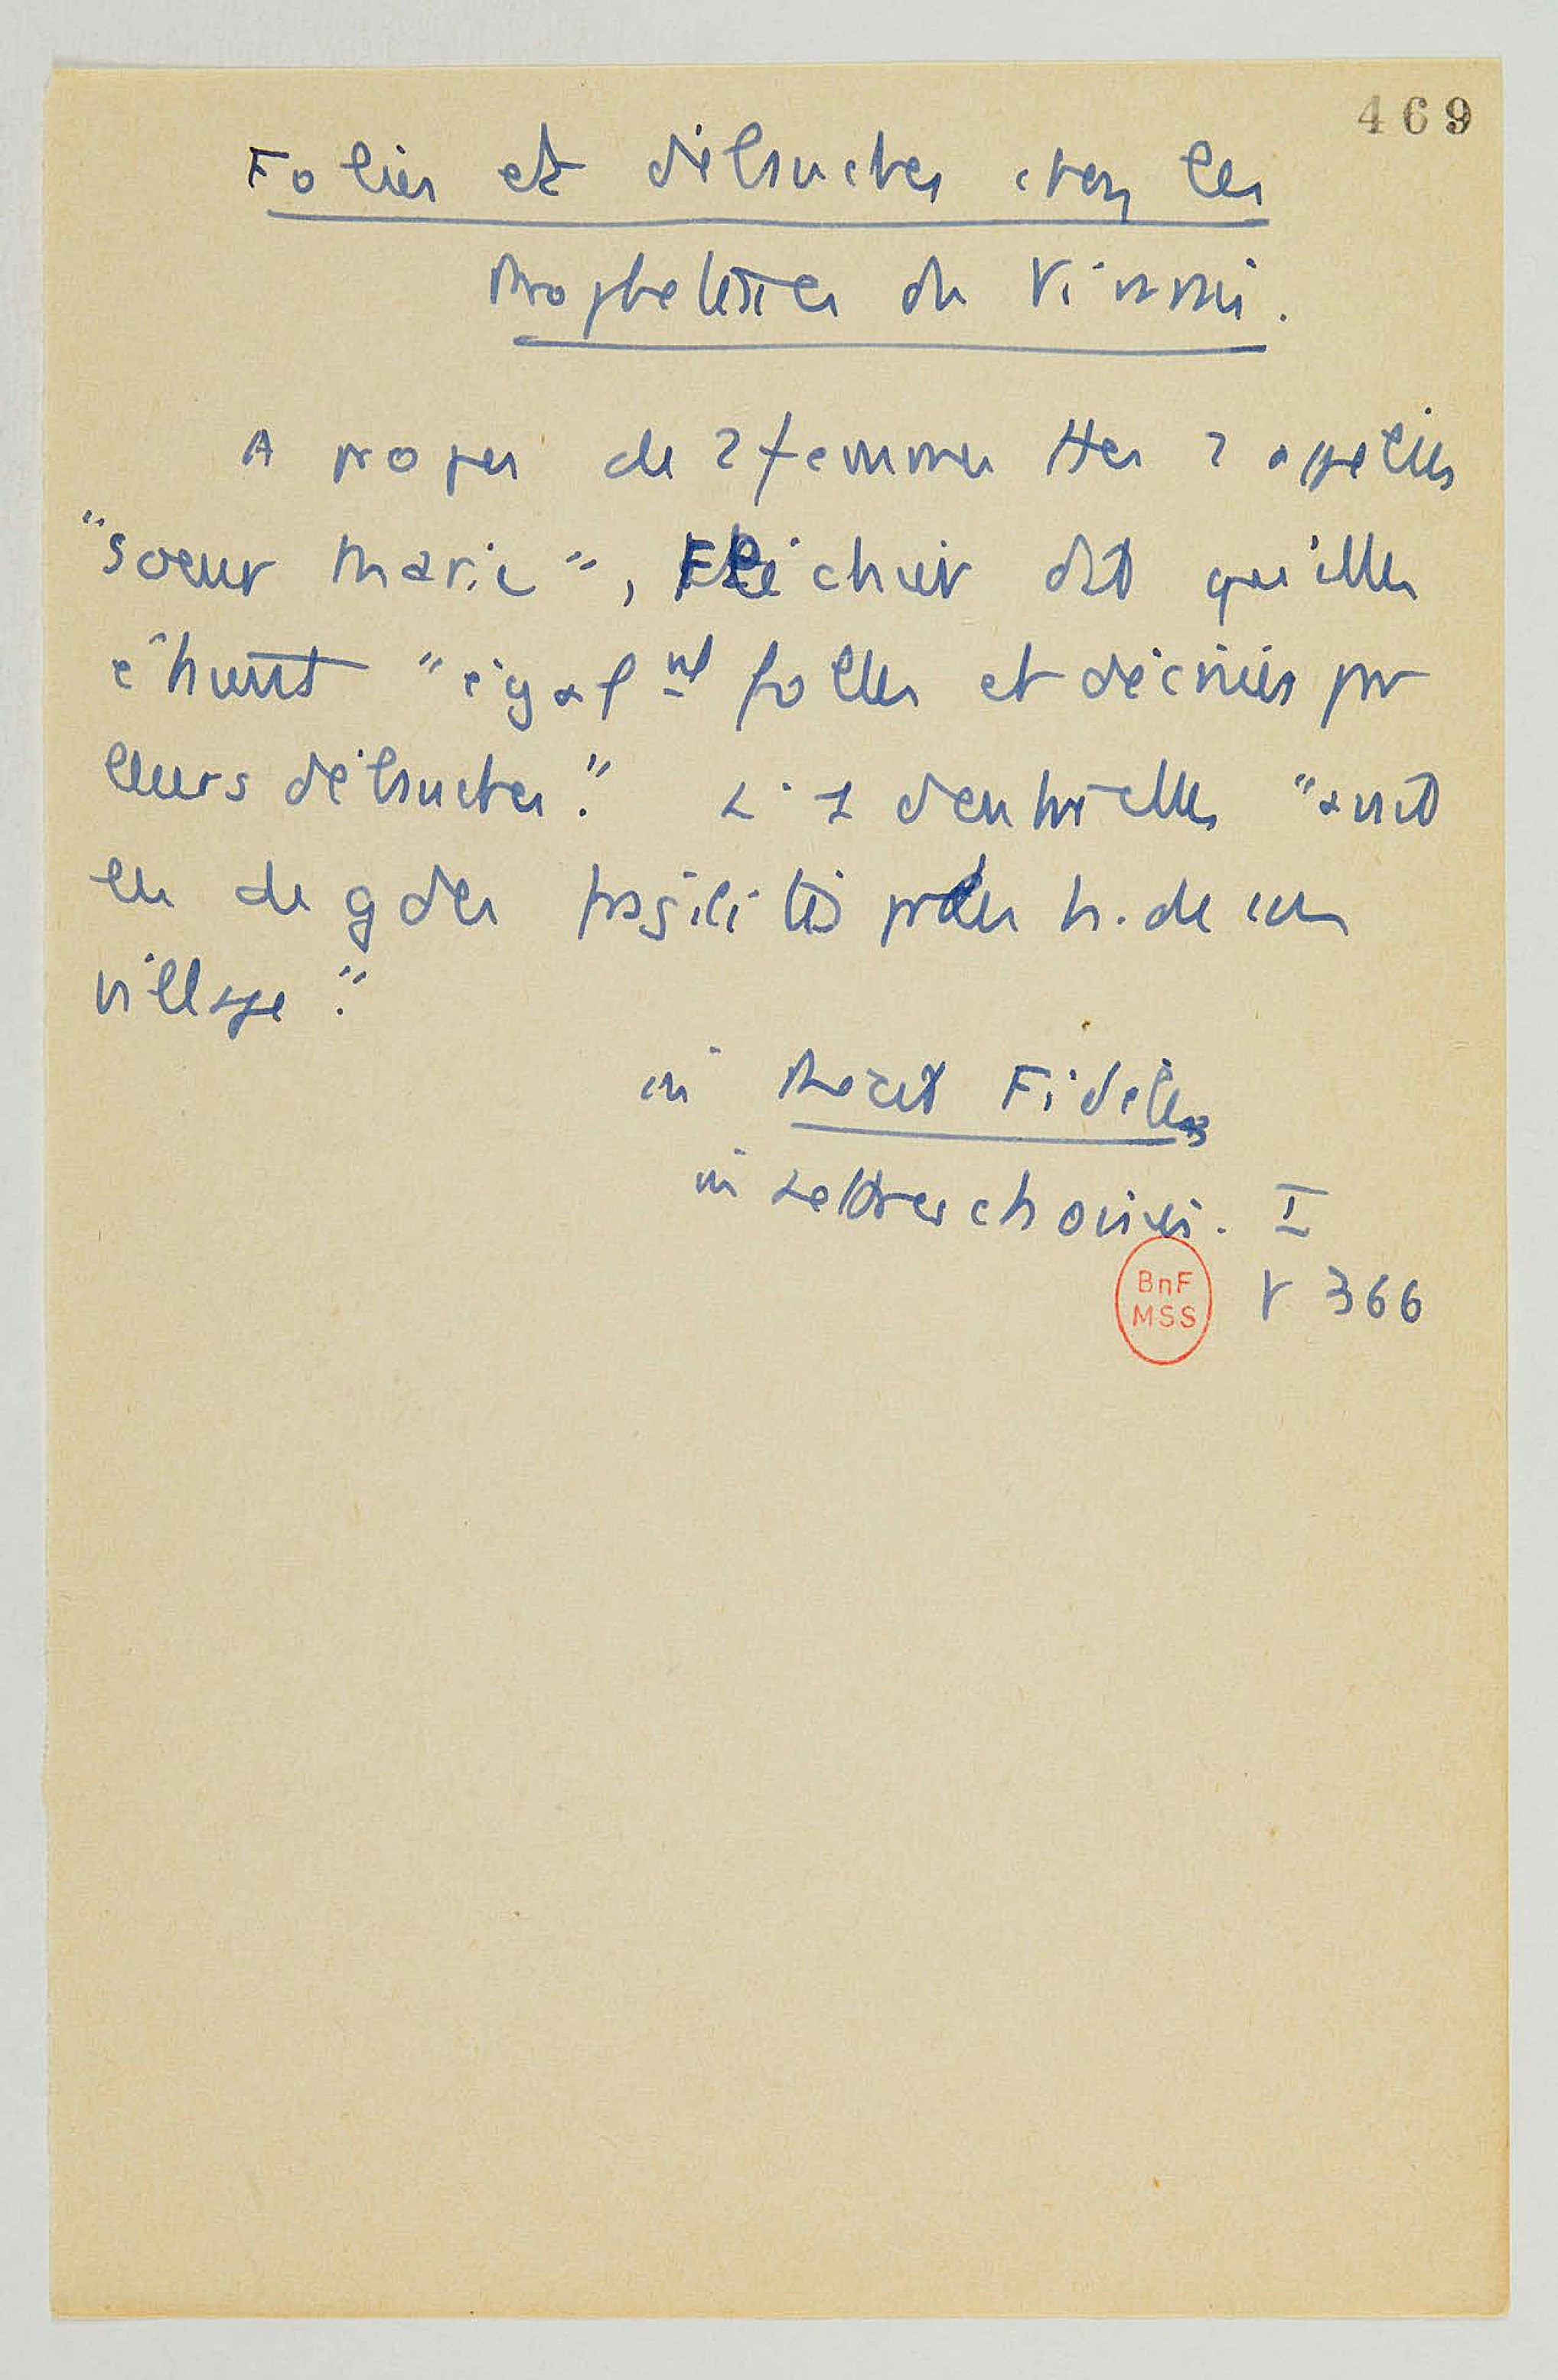 469
Folies et débauches chez les
prophétesses du Vivarais.
A propos de 2 femmes ttes 2 appelées
"soeur Marie", Fléchier dit qu'elles
étaient "égalnt folles et décriées pr
leurs débauches." L'1 d'entre elles "avait
eu de gdes fragilités pr les h. de son
village".
in Récit Fidèle
in Lettres choisies. I
p 366
BnF
MSS